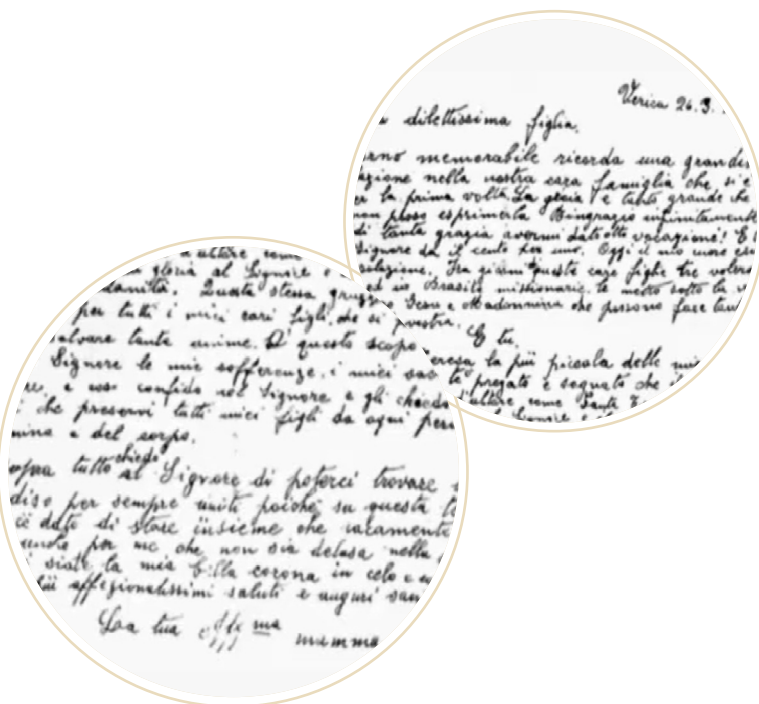 Verica 26.3.
dilettissima figlia,
rno memorabile ricorda una grande
azione nella nostra cara famiglia che si è
la prima volta. La gioia è tanto grande che
non posso esprimerla Ringrazio infinitamente
di tanta grazia avermi date otto vocazioni! E
Signore da il cento per uno. Oggi il mio cuore
solazione. Fra giorni queste care figlie tre
ed in Brasile missionarie le metto sotto la
Gesù e Madonnina che possono fare tan
E tu,
eresa la più piccola delle mi
pregato e sognato che
altare come Santa
altare come
gloria al Signore e
Questa stessa
per tutti i miei cari figli, che si
salvare tante anime. A questo scopo
Signore le mie sofferenze, i miei sac
re, e così confido nel Signore e gli chiedo
che preservi tutti miei figli da ogni peri
nima e del corpo.
opra tutto chiedo al Signore di poterci trovare
diso per sempre uniti poichè su questa
cè dato di stare insieme che raramente
anche per me che non sia delusa nella
siate la mia bella corona in celo e
affezionatissimi saluti e auguri
La tua aff.ma mamma